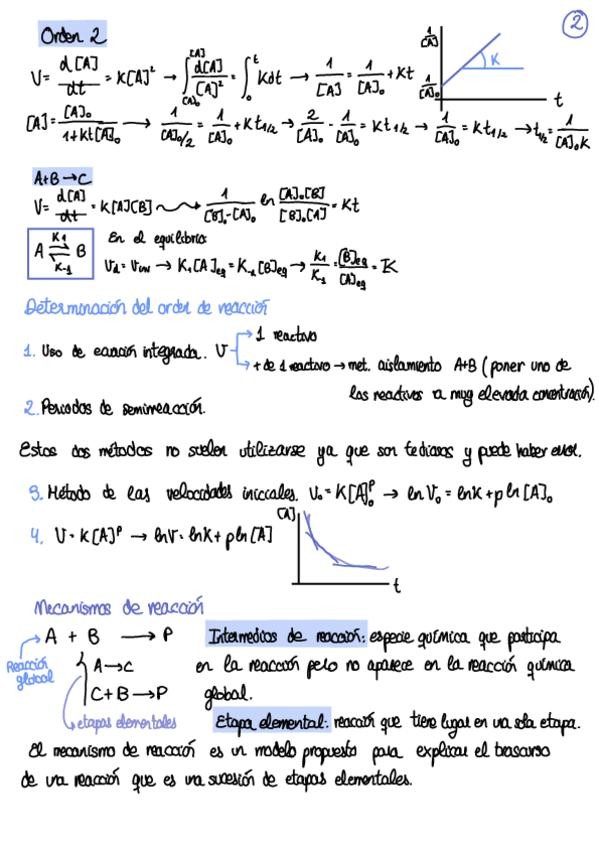 2
Orden 2
V = d[A]/dt = K[A]² → ∫[A]₀^[A] d[A]/[A]² = ∫₀^t Kdt → 1/[A] = 1/[A]₀ + Kt
1/[A]
K
1/[A]₀
t
[A] = [A]₀/1+Kt[A]₀ → 1/[A]₀/2 = 1/[A]₀ + Kt1/2 → 2/[A]₀ - 1/[A]₀ = Kt1/2 → 1/[A]₀ = Kt1/2 → t1/2 = 1/[A]₀K
A+B→C
V = d[A]/dt = K[A][B] → 1/[B]₀-[A]₀ ln [A]₀[B]/[B]₀[A] = Kt
A ⇌ B K1 K-1
En el equilibrio:
→ K1[A]eq = K-1[B]eq → K1/K-1 = [B]eq/[A]eq = K
Determinación del orden de reacción
1. Uso de ecuación integrada. V
→ 1 reactivo
→ + de 1 reactivo → met. aislamiento A+B (poner uno de
los reactivos a muy elevada concentración).
2. Periodos de semirreacción.
Estos dos métodos no suelen utilizarse ya que son tediosos y puede haber error.
3. Método de las velocidades iniciales. V₀ = K[A]₀ᵖ → ln V₀ = lnK + p ln [A]₀
4. V = K[A]ᵖ → lnV = lnK + pln [A]
[A]
t
Mecanismos de reacción
A + B → P
Reacción global
A→C
C+B→P
etapas elementales
Intermedios de reacción: especie química que participa
en la reacción pero no aparece en la reacción química
global.
Etapa elemental: reacción que tiene lugar en una sola etapa.
El mecanismo de reacción es un modelo propuesto para explicar el trascurso
de una reacción que es una sucesión de etapas elementales.